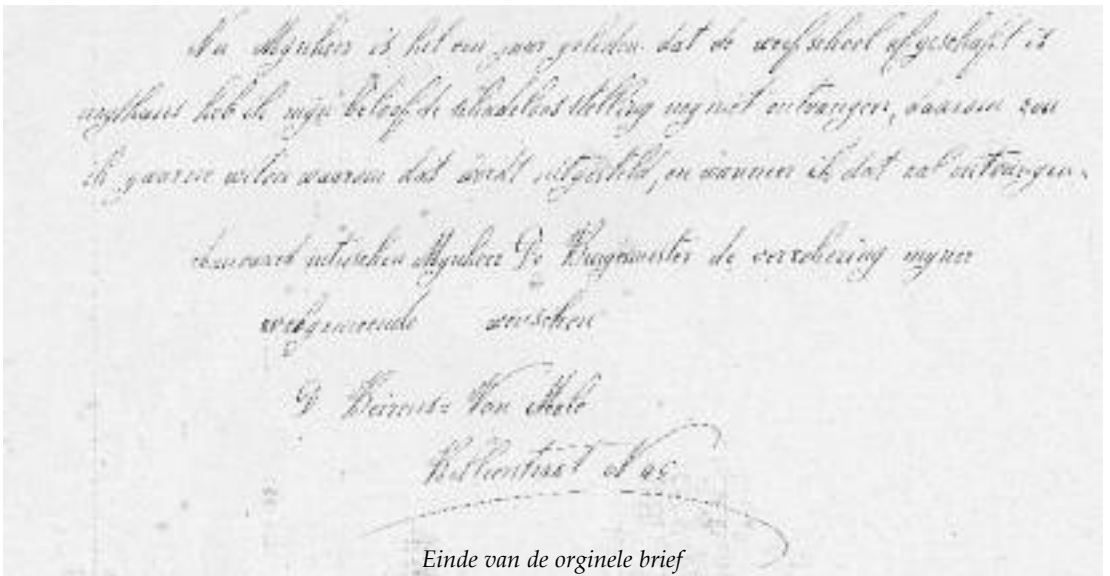 Nu Mynheer is het een jaar geleden dat de weefschool afgeschaft is
heb ik mijn beloofde schadeloosstelling nog niet ontvangen, daarom zou
ik gaaren weten waarom dat word uitgesteld, en wanneer ik dat zal ontvangen.
Mynheer De Burgemeester de verzekering myner
welgemeende wenschen
D Beirens= Van
N
Einde van de orginele brief